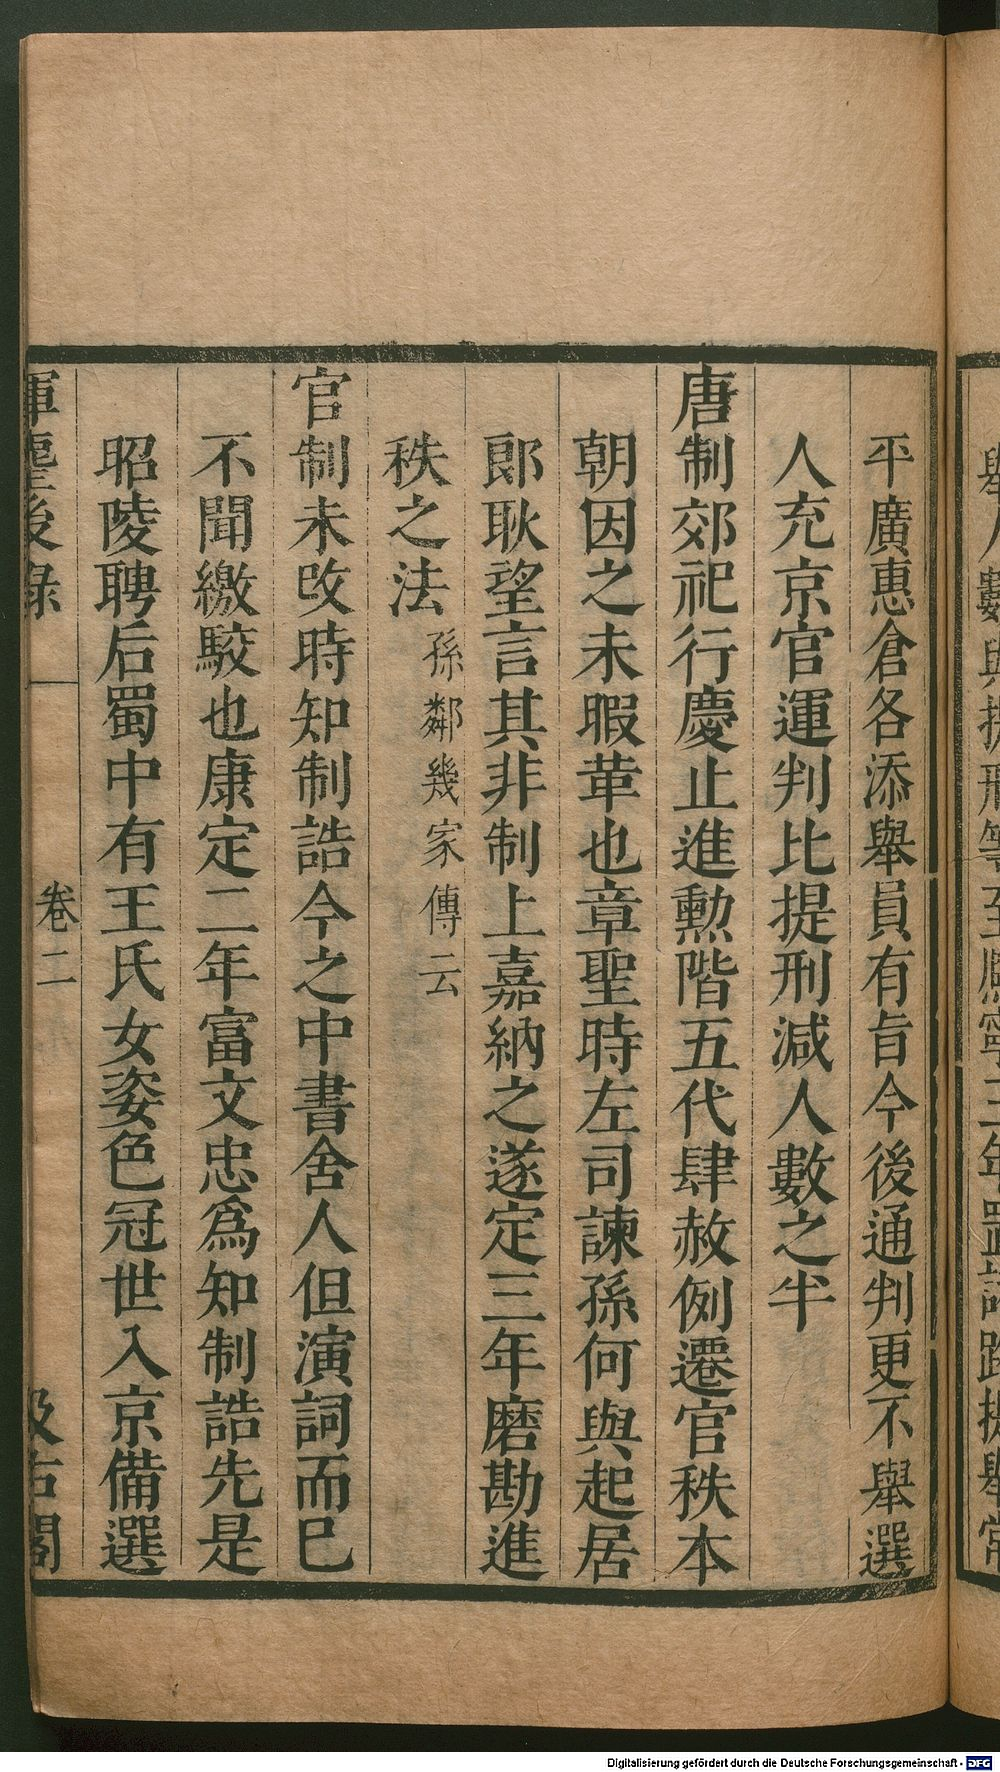 平廣惠倉各添舉員有旨今後通判更不舉選
人充京官運判比提刑減人數之半
唐制郊祀行慶止進勲階五代肆赦例遷官秩本
朝因之未暇革也章聖時左司諫孫何與起居
郎耿望言其非制上嘉納之遂定三年磨勘進
秩之法孫鄰幾家傳云
官制未改時知制誥今之中書舍人但演詞而已
不聞繳駮也康定二年富文忠爲知制誥先是
昭陵聘后蜀中有王氏女姿色冠世入京備選
揮麈後錄 卷二 汲古閣
Digitalisierung gefördert durch die Deutsche Forschungsgemeinschaft - DFG